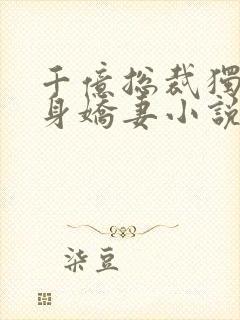 千億總裁獨
身嬌妻小說
柒豆